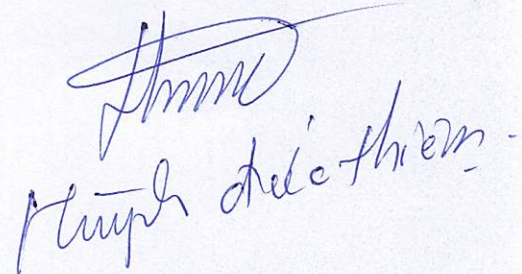 Huỳnh đức thiện